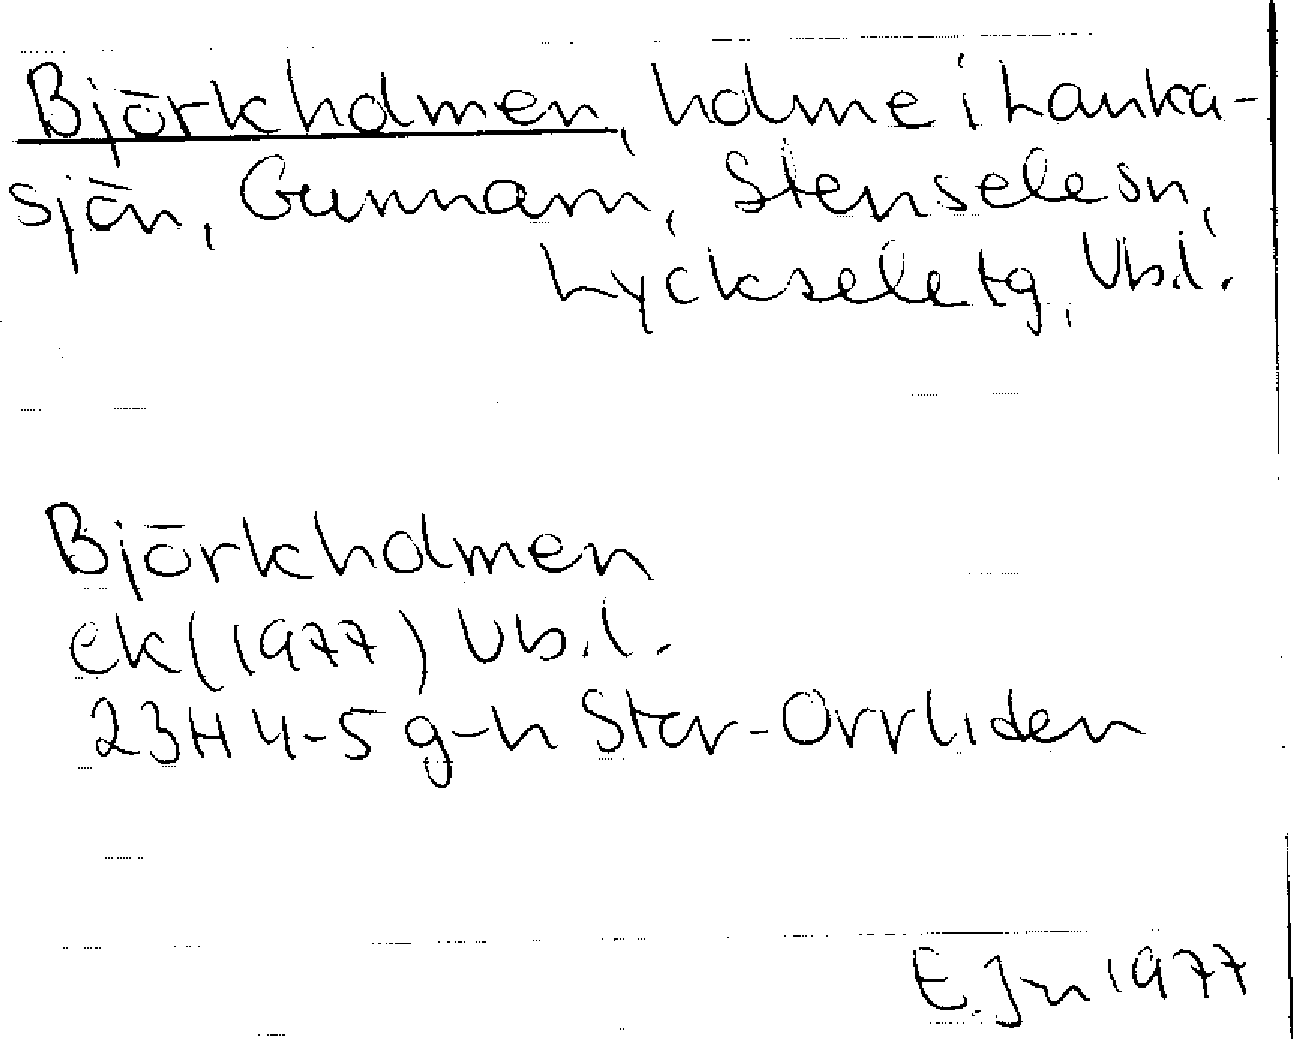 Björkholmen, holme i Lanka-
sjön, Gunnarn, Stenselesn,
Lycksele tg, Vb.l.
Björkholmen
ek (1977) Vb.l.
23H 4-5 g-h Stor-Orrliden
E. Jn 1977